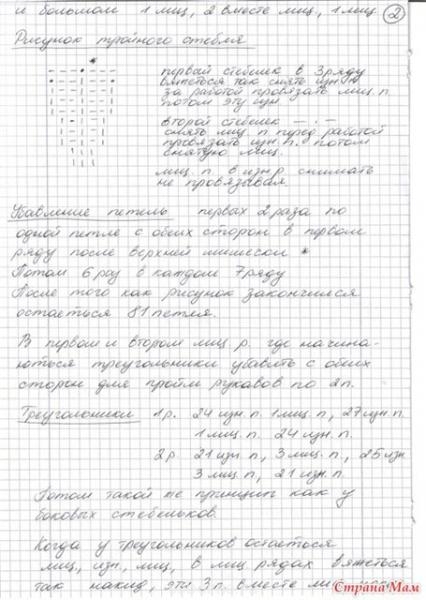 и большом 1 лиц, 2 вместе лиц, 1 лиц
2
Рисунок тройного стебля
первый стебелек в 3 ряду
вяжеться так снять изн. п.
за работой провязать лиц. п
потом эту изн
второй стебелек — · —
снять лиц. п перед работой
провязать изн. п. потом
снятую лиц.
лиц. п. в изн р снимать
не провязывая.
Убавление петель первых 2 раза по
одной петле с обеих сторон в первом
ряду после верхней
Потом 6 раз в каждом 7 ряду
После того как рисунок закончился
остаеться 81 петля.
В первом и втором лиц. р. где начина-
ються треугольники убавить с обеих
сторон для пройм рукавов по 2п.
Треугольники 1р. 24 изн. п. 1 лиц. п, 27 изн. п.
1 лиц. п. 24 изн. п.
2р. 21 изн. п, 3 лиц. п, 25 изн
3 лиц. п, 21 изн. п.
Потом такой же принцип как у
боковых стебельков.
Когда у треугольников остаеться
лиц, изн, лиц, в лиц рядах вяжеться
так накид, эти 3 п. вместе лиц
Страна Мам